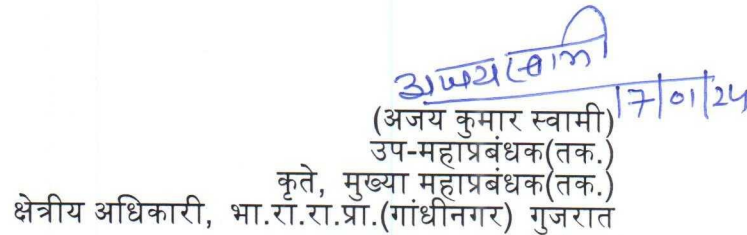 अजय स्वामी
17/01/24
(अजय कुमार स्वामी)
उप-महाप्रबंधक(तक.)
कृते, मुख्या महाप्रबंधक(तक.)
क्षेत्रीय अधिकारी, भा.रा.रा.प्रा.(गांधीनगर) गुजरात